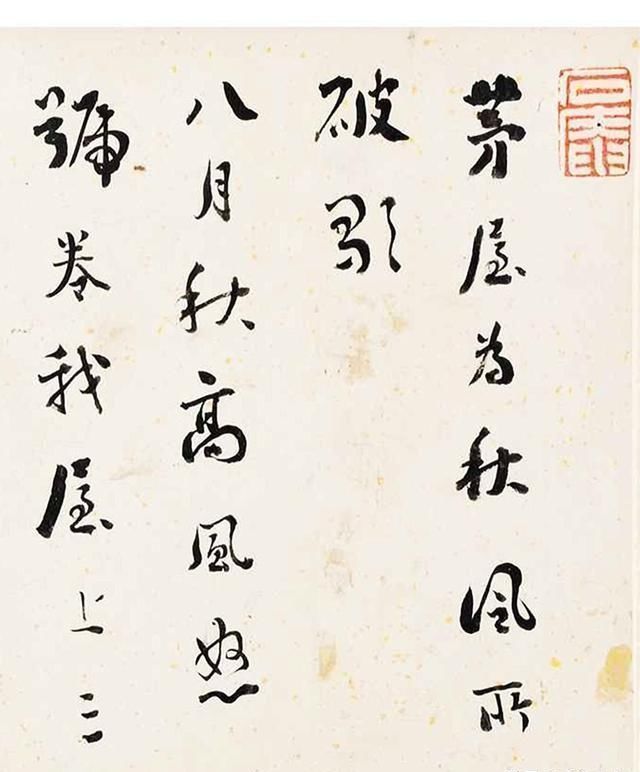 茅屋為秋風所
破歌
八月秋高風怒
號卷我屋上三